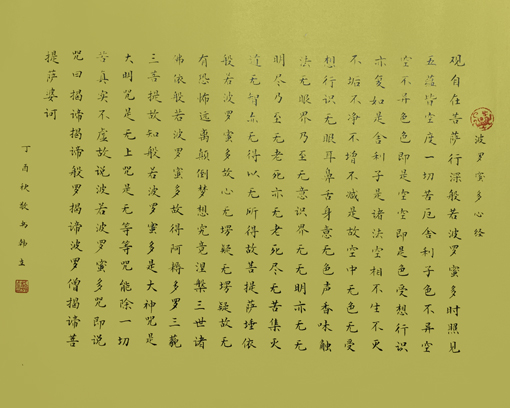 波罗蜜多心经
观自在菩萨行深般若波罗蜜多时照见
五蕴皆空度一切苦厄舍利子色不异空
空不异色色即是空空即是色受想行识
亦复如是舍利子是诸法空相不生不灭
不垢不净不增不减是故空中无色无受
想行识无眼耳鼻舌身意无色声香味触
法无眼界乃至无意识界无无明亦无无
明尽乃至无老死亦无老死尽无苦集灭
道无智亦无得以无所得故菩提萨埵依
般若波罗蜜多故心无碍无碍故无
有恐怖远离颠倒梦想究竟涅槃三世诸
佛依般若波罗蜜多故得阿耨多罗三藐
三菩提故知般若波罗蜜多是大神咒是
大明咒是无上咒是无等等咒能除一切
苦真实不虚故说波若波罗蜜多咒即说
咒曰揭谛揭谛般罗揭谛波罗僧揭谛菩
提萨婆诃
丁酉秋敬书